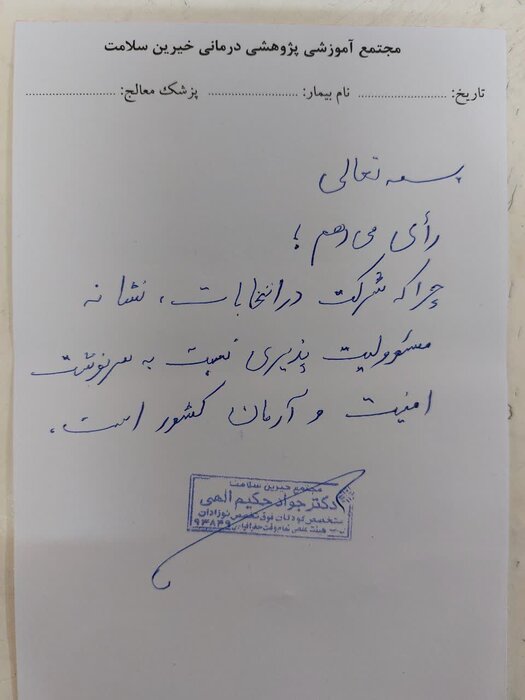 مجتمع آموزشی پژوهشی درمانی خیرین سلامت
تاریخ: .......................... نام بیمار: .......................... پزشک معالج: ..........................
بسمه تعالی
رأی می دهم ؛
چرا که شرکت در انتخابات ، نشانه
مسئوولیت پذیری نسبت به سرنوشت
امنیت و آرمان کشور است.
مجتمع خیرین سلامت
دکتر جواد حکیم الهی
متخصص کودکان فوق تخصص نوزادان
هیئت علمی تمام وقت جغرافیایی ۹۳۸۴۹